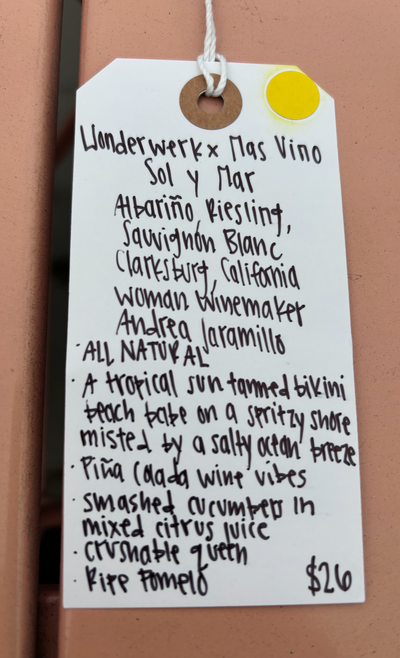 Wonderwerk x Mas Vino
Sol y Mar
Albariño, Riesling,
Sauvignon Blanc
Clarksburg, California
Woman Winemaker
Andrea Jaramillo
· ALL NATURAL
· A tropical sun tanned bikini
beach babe on a spritzy shore
misted by a salty ocean breeze
· Piña Colada wine vibes
· smashed cucumbers in
mixed citrus juice
· crushable queen
· Ripe Pomelo
$26